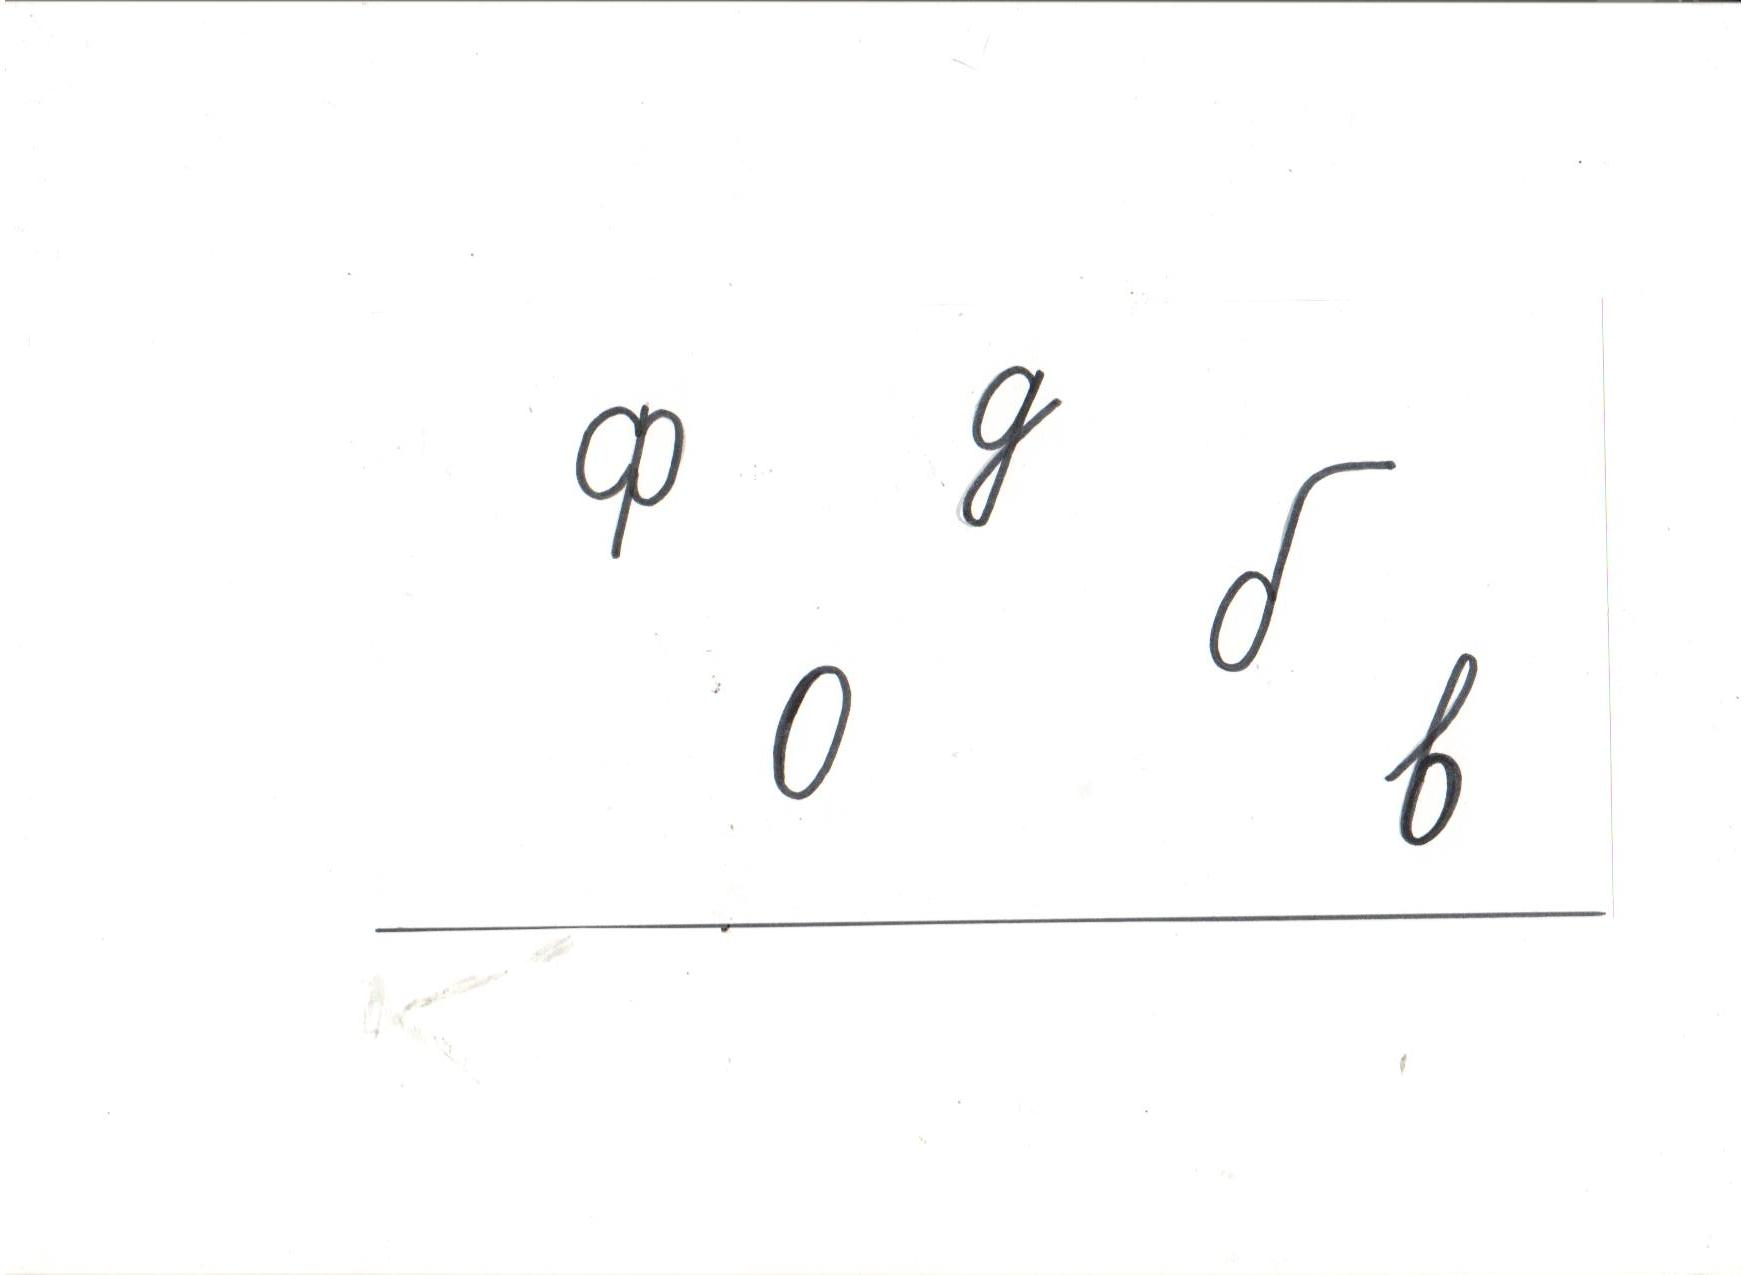 ф д б
о в